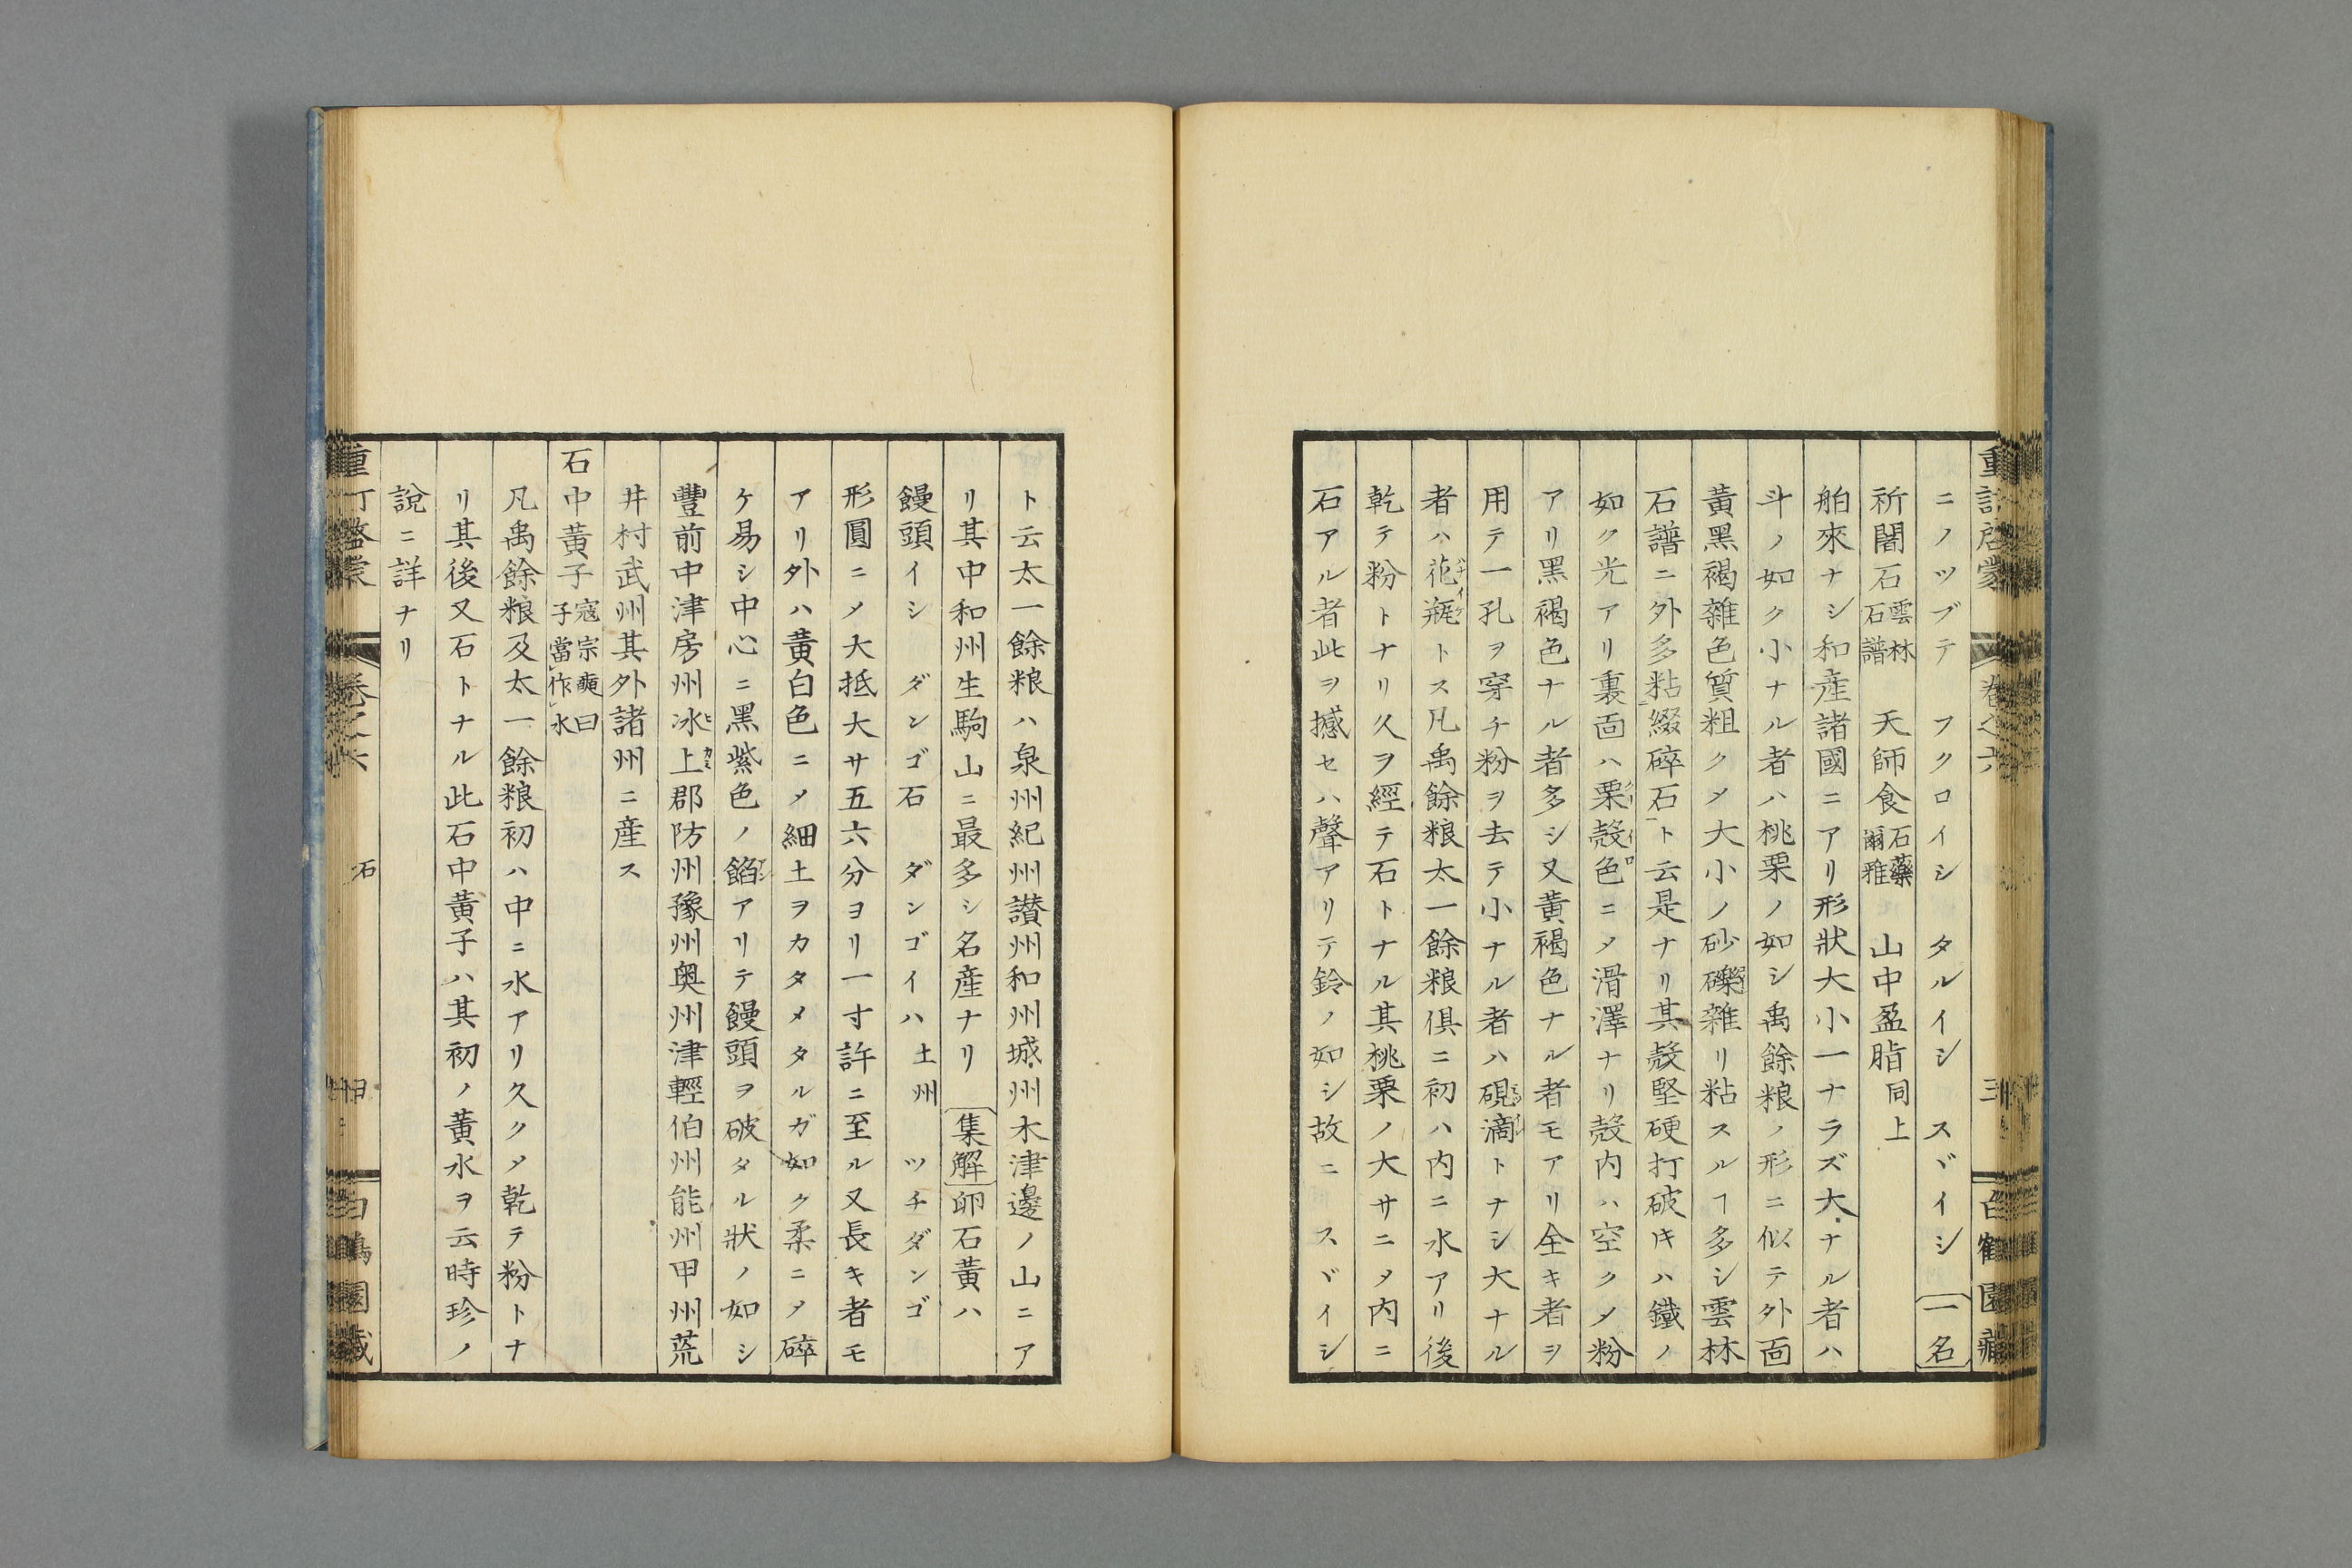 ニノツブテ　フクロイシ　タルイシ　スヾイシ　一名
祈闍石雲林石譜　天師食石藥爾雅　山中盈脂同上
舶來ナシ和産諸國ニアリ形狀大小一ナラズ大ナル者ハ
斗ノ如ク小ナル者ハ桃栗ノ如シ禹餘粮ノ形ニ似テ外面
黃黑褐雜色質粗クメ大小ノ砂礫雜リ粘スルヿ多シ雲林
石譜ニ外多粘綴碎石ト云是ナリ其殼堅硬打破キハ鐵ノ
如ク光アリ裏面ハ栗殼色ニメ滑澤ナリ殼内ハ空クメ粉
アリ黑褐色ナル者多シ又黃褐色ナル者モアリ全キ者ヲ
用テ一孔ヲ穿チ粉ヲ去テ小ナル者ハ硯滴トナシ大ナル
者ハ花瓶トス凡禹餘粮太一餘粮俱ニ初ハ内ニ水アリ後
乾テ粉トナリ久ヲ經テ石トナル其桃栗ノ大サニメ内ニ
石アル者此ヲ撼セハ聲アリテ鈴ノ如シ故ニ　スヾイシ
ト云太一餘粮ハ泉州紀州讃州和州城州木津邊ノ山ニア
リ其中和州生駒山ニ最多シ名産ナリ　集解卵石黃ハ
饅頭イシ　ダンゴ石　ダンゴイハ土州　ツチダンゴ
形圓ニメ大抵大サ五六分ヨリ一寸許ニ至ル又長キ者モ
アリ外ハ黃白色ニメ細土ヲカタメタルガ如ク柔ニメ碎
ケ易シ中心ニ黑紫色ノ餡アリテ饅頭ヲ破タル狀ノ如シ
豐前中津房州冰上郡防州豫州奥州津輕伯州能州甲州荒
井村武州其外諸州ニ産ス
石中黃子寇宗奭曰子當作水
凡禹餘粮及太一餘粮初ハ中ニ水アリ久クメ乾テ粉トナ
リ其後又石トナル此石中黃子ハ其初ノ黃水ヲ云時珍ノ
說ニ詳ナリ